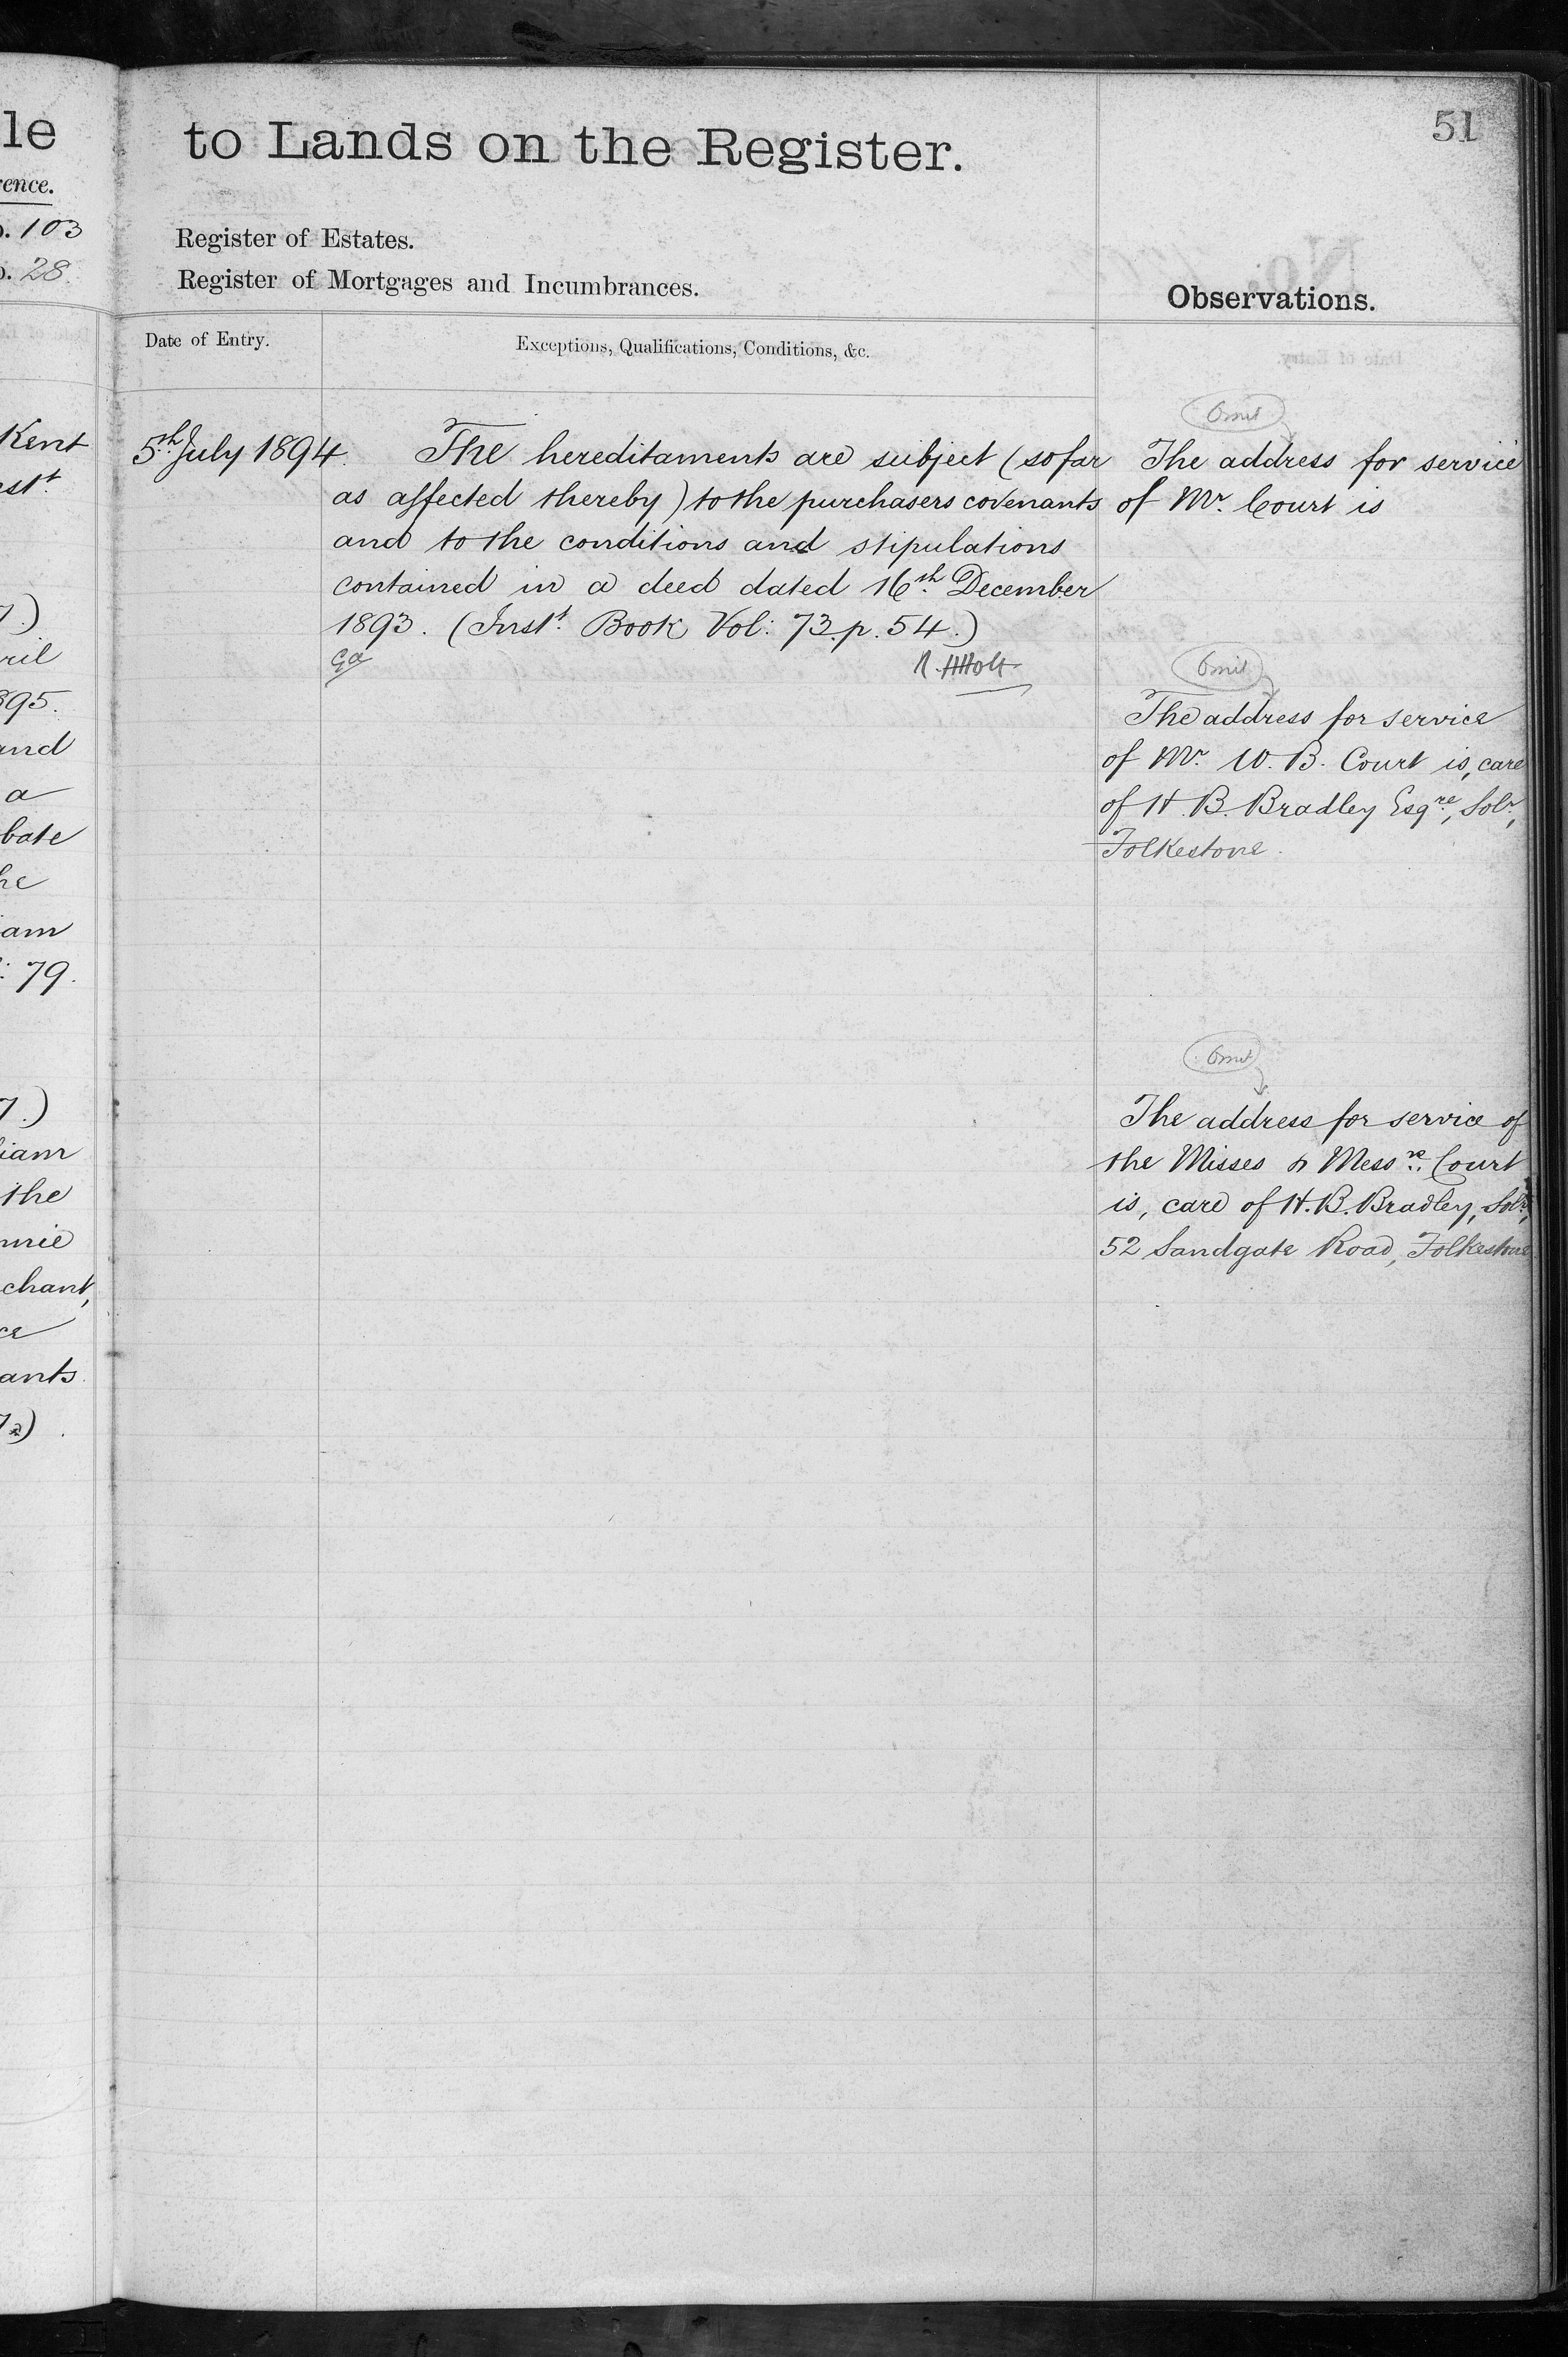 le
rence.
o. 103
o. 28.
Kent
est.t
7.)
ril
895.
and
a
bate
he
iam
: 79.
7.)
liam
the
nnie
chant,
ce
ants
72)
to Lands on the Register.
51
Register of Estates.
Register of Mortgages and Incumbrances.
Observations.
Date of Entry.
Exceptions, Qualifications, Conditions, &c.
5th July 1894.
The hereditaments are subject (so far
as affected thereby) to the purchasers covenants
and to the conditions and stipulations
contained in a deed dated 16th December
1893. (Inst.t Book Vol: 73. p. 54.)
Ga
R. H Holt
Omit
The address for service
of Mr. Court is
Omit
The address for service
of Mr. W. B. Court is, care
of H. B. Bradley Esqre, Solr,
Folkestone.
Omit
The address for service of
the Misses & Messrs. Court
is, care of H. B. Bradley, Solr,
52 Sandgate Road, Folkestone